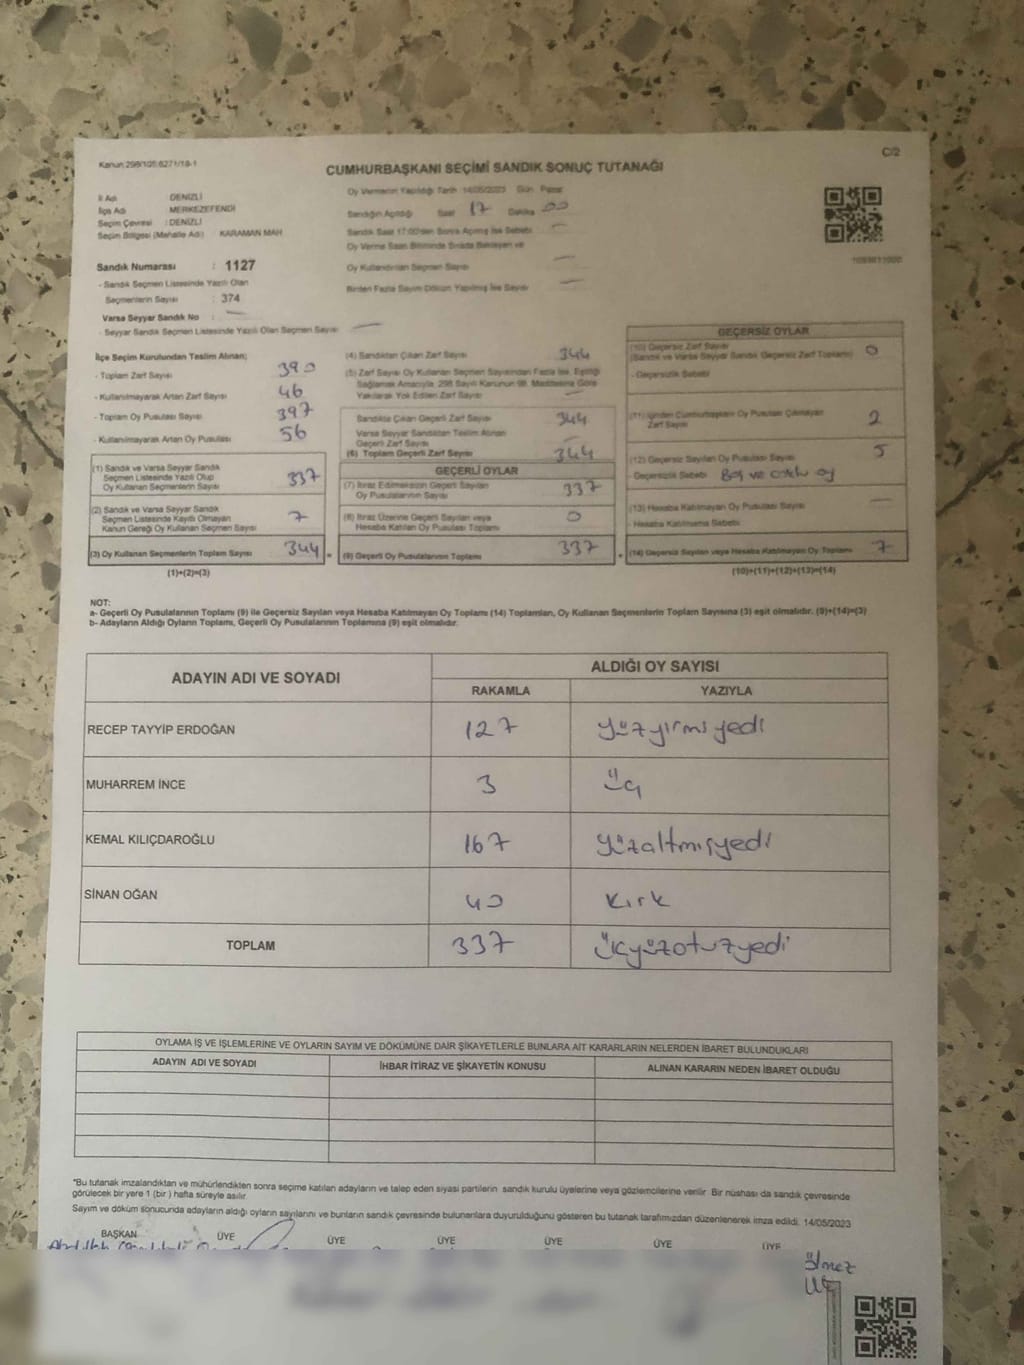 Kanun 298/105 6271/18-1
C/2
CUMHURBAŞKANI SEÇİMİ SANDIK SONUÇ TUTANAĞI
İl Adı DENİZLİ
İlçe Adı MERKEZEFENDİ
Seçim Çevresi : DENİZLİ
Seçim Bölgesi (Mahalle Adı) KARAMAN MAH
Sandık Numarası : 1127
- Sandık Seçmen Listesinde Yazılı Olan
Seçmenlerin Sayısı : 374
Varsa Seyyar Sandık No :
- Seyyar Sandık Seçmen Listesinde Yazılı Olan Seçmen Sayısı
Oy Vermenin Yapıldığı Tarih 14/05/2023 Gün Pazar
Sandığın Açıldığı Saat 17 Dakika 00
Sandık Saat 17:00'den Sonra Açılmış İse Sebebi
Oy Verme Saati Bitiminde Sırada Bekleyen ve
Oy Kullandırılan Seçmen Sayısı
Birden Fazla Sayım Döküm Yapılmış İse Sayısı
İlçe Seçim Kurulundan Teslim Alınan;
- Toplam Zarf Sayısı 390
- Kullanılmayarak Artan Zarf Sayısı 46
- Toplam Oy Pusulası Sayısı 397
- Kullanılmayarak Artan Oy Pusulası 56
(1) Sandık ve Varsa Seyyar Sandık
Seçmen Listesinde Yazılı Olup
Oy Kullanan Seçmenlerin Sayısı 337
(2) Sandık ve Varsa Seyyar Sandık
Seçmen Listesinde Kayıtlı Olmayan
Kanun Gereği Oy Kullanan Seçmen Sayısı 7
(3) Oy Kullanan Seçmenlerin Toplam Sayısı 344
(1)+(2)=(3)
(4) Sandıktan Çıkan Zarf Sayısı 344
(5) Zarf Sayısı Oy Kullanan Seçmen Sayısından Fazla İse, Eşitliği
Sağlamak Amacıyla 298 Sayılı Kanunun 98. Maddesine Göre
Yakılarak Yok Edilen Zarf Sayısı
Sandıkta Çıkan Geçerli Zarf Sayısı 344
Varsa Seyyar Sandıktan Teslim Alınan
Geçerli Zarf Sayısı
(6) Toplam Geçerli Zarf Sayısı 344
GEÇERLİ OYLAR
(7) İtiraz Edilmeksizin Geçerli Sayılan
Oy Pusulalarının Sayısı 337
(8) İtiraz Üzerine Geçerli Sayılan veya
Hesaba Katılan Oy Pusulası Toplamı 0
(9) Geçerli Oy Pusulalarının Toplamı 337
GEÇERSİZ OYLAR
(10) Geçersiz Zarf Sayısı
(Sandık ve Varsa Seyyar Sandık Geçersiz Zarf Toplamı) 0
- Geçersizlik Sebebi
(11) İçinden Cumhurbaşkanı Oy Pusulası Çıkmayan
Zarf Sayısı 2
(12) Geçersiz Sayılan Oy Pusulası Sayısı 5
- Geçersizlik Sebebi Boş ve oy
(13) Hesaba Katılmayan Oy Pusulası Sayısı
- Hesaba Katılmama Sebebi
(14) Geçersiz Sayılan veya Hesaba Katılmayan Oy Toplamı 7
(10)+(11)+(12)+(13)=(14)
NOT:
a- Geçerli Oy Pusulalarının Toplamı (9) ile Geçersiz Sayılan veya Hesaba Katılmayan Oy Toplamı (14) Toplamları, Oy Kullanan Seçmenlerin Toplam Sayısına (3) eşit olmalıdır. (9)+(14)=(3)
b- Adayların Aldığı Oyların Toplamı, Geçerli Oy Pusulalarının Toplamına (9) eşit olmalıdır.
ADAYIN ADI VE SOYADI ALDIĞI OY SAYISI
RAKAMLA YAZIYLA
RECEP TAYYİP ERDOĞAN 127 yüzyirmiyedi
MUHARREM İNCE 3 üç
KEMAL KILIÇDAROĞLU 167 yüzaltmışyedi
SİNAN OĞAN 40 kırk
TOPLAM 337 üçyüzotuzyedi
OYLAMA İŞ VE İŞLEMLERİNE VE OYLARIN SAYIM VE DÖKÜMÜNE DAİR ŞİKAYETLERLE BUNLARA AİT KARARLARIN NELERDEN İBARET BULUNDUKLARI
ADAYIN ADI VE SOYADI İHBAR İTİRAZ VE ŞİKAYETİN KONUSU ALINAN KARARIN NEDEN İBARET OLDUĞU
*Bu tutanak imzalandıktan ve mühürlendikten sonra seçime katılan adayların ve talep eden siyasi partilerin sandık kurulu üyelerine veya gözlemcilerine verilir. Bir nüshası da sandık çevresinde
görülecek bir yere 1 (bir ) hafta süreyle asılır.
Sayım ve döküm sonucunda adayların aldığı oyların sayılarını ve bunların sandık çevresinde bulunanlara duyurulduğunu gösteren bu tutanak tarafımızdan düzenlenerek imza edildi. 14/05/2023
BAŞKAN ÜYE ÜYE ÜYE ÜYE ÜYE ÜYE